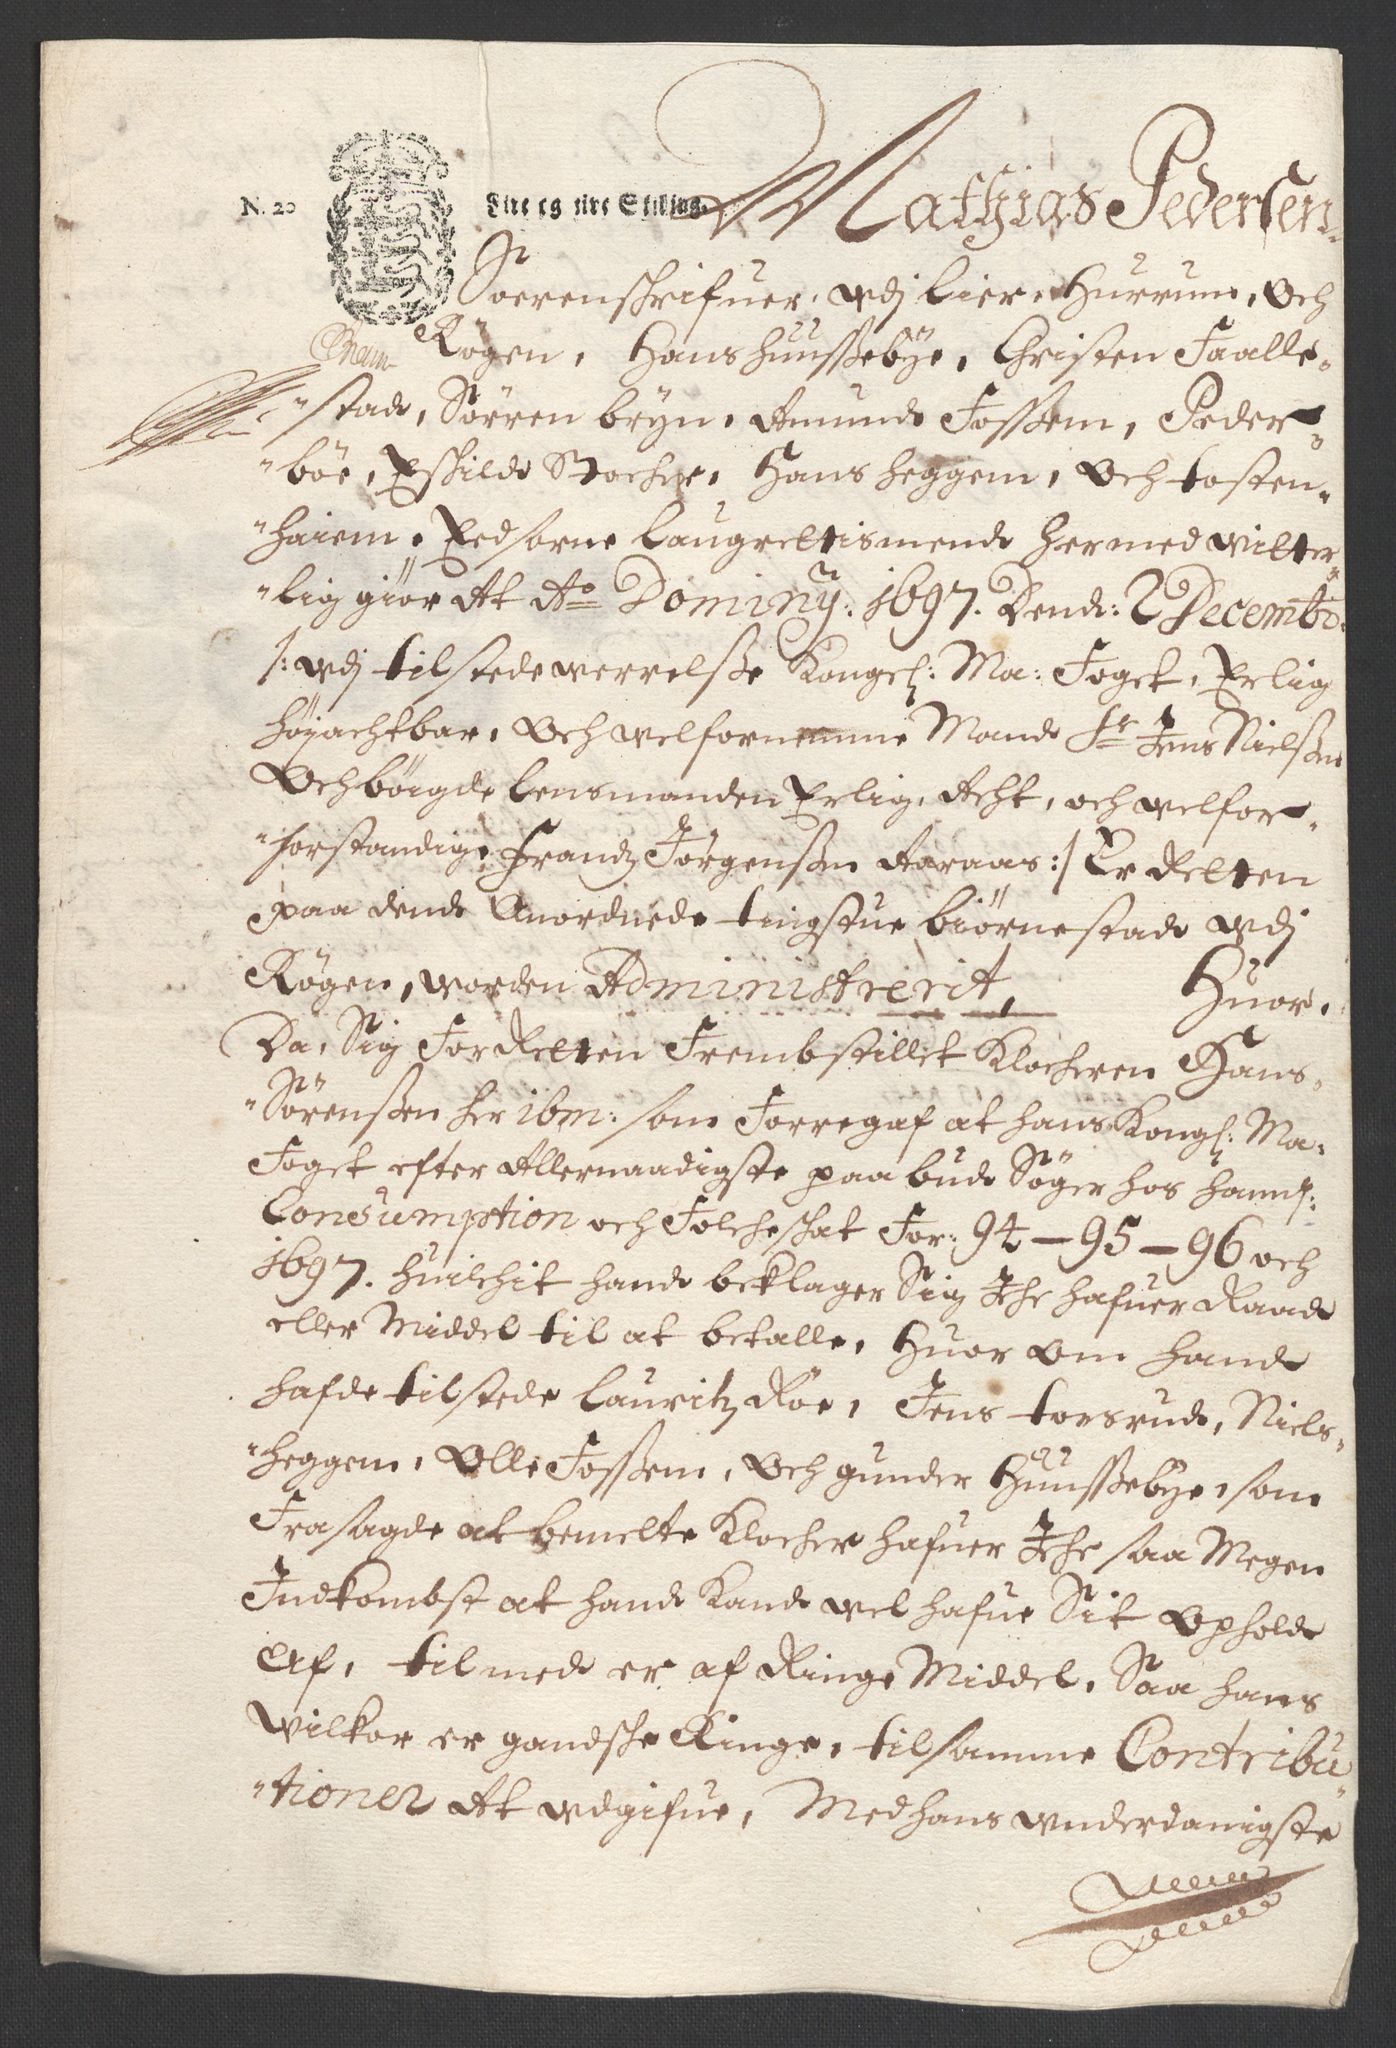 N. 20 Fire og tive Skilling.
Mathias Pedersen
Soerenschrifuer, wdj Lier, Hurrum, Och
Røgen, Hans Hunssebye, Christen Faalle-
"stad, Sørren bryn, Amund Fossem, Peder
"böe, Eskild Stocher, Hans Heggem, Och tosten
"haiem, Eedsorne Laugrettismend her med witter-
"lig giör At Ao Dominÿ: 1697. Dend: 2 Decembr:
/: wdj tilstedewerrelsse Kongl: Ma: Foget, Erlig
höyachtbar, Och welfornemme Mand Sr Jens Nielssen
Och böigde Lensmanden Erlig, Acht, och welfor-
"forstandige Frandz Jörgenssen Aaraas :/ Er Retten
paa dend Anordnede tingstue biörnestad wdj
Røgen, worden Administrerit, Huor,
Da, Sig For Retten Frembstillet Klocheren Hans
"Sörenssen her ibm: som Forregaf at hans Kongl: Ma:
Foget efter Allernaadigste paabud Söger hos hannem:
Consumption och Folcheschat For: 94 – 95 – 96 och
1697. huilchit hand beklager Sig Iche hafuer Raad
eller Middel til at betalle, Huor om hand
hafde tilstede Lauritz Röe, Jens torsrud, Niels
"heggem, Olle Fossem, Och gunder Hunssebye, som
Frasagde at bemelte Klocher hafuer Iche saa Megen
Indkombst at hand Kand wel hafue Sit Ophold
Af, tilmed er af Ringe Middel, Saa hans
wilkor er gandsche Ringe, tilsamme Contribu
"tioner At wdgifue, Med hans wnderdanigste